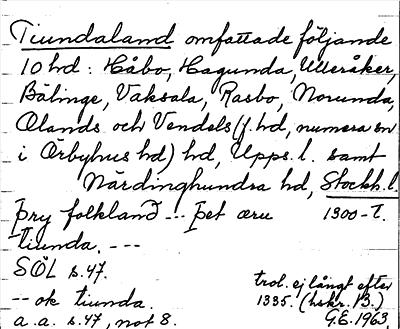 Tiundaland omfattade följande
10 hd: Håbo, Hagunda, Ulleråker,
Bälinge, Vaksala, Rasbo, Norunda,
Ølands och Vendels (f. hd, numera sn
i Örbyhus hd) hd, Upps. l. samt
Närdinghundra hd, Stockh. l.
þry folkland --- þet æru 1300-t.
tiunda. ---
SÖL s. 47.
-- ok tiunda.
a. a. s. 47, not 8.
trol. ej långt efter
1335. (hskr. B.)
G.E. 1963